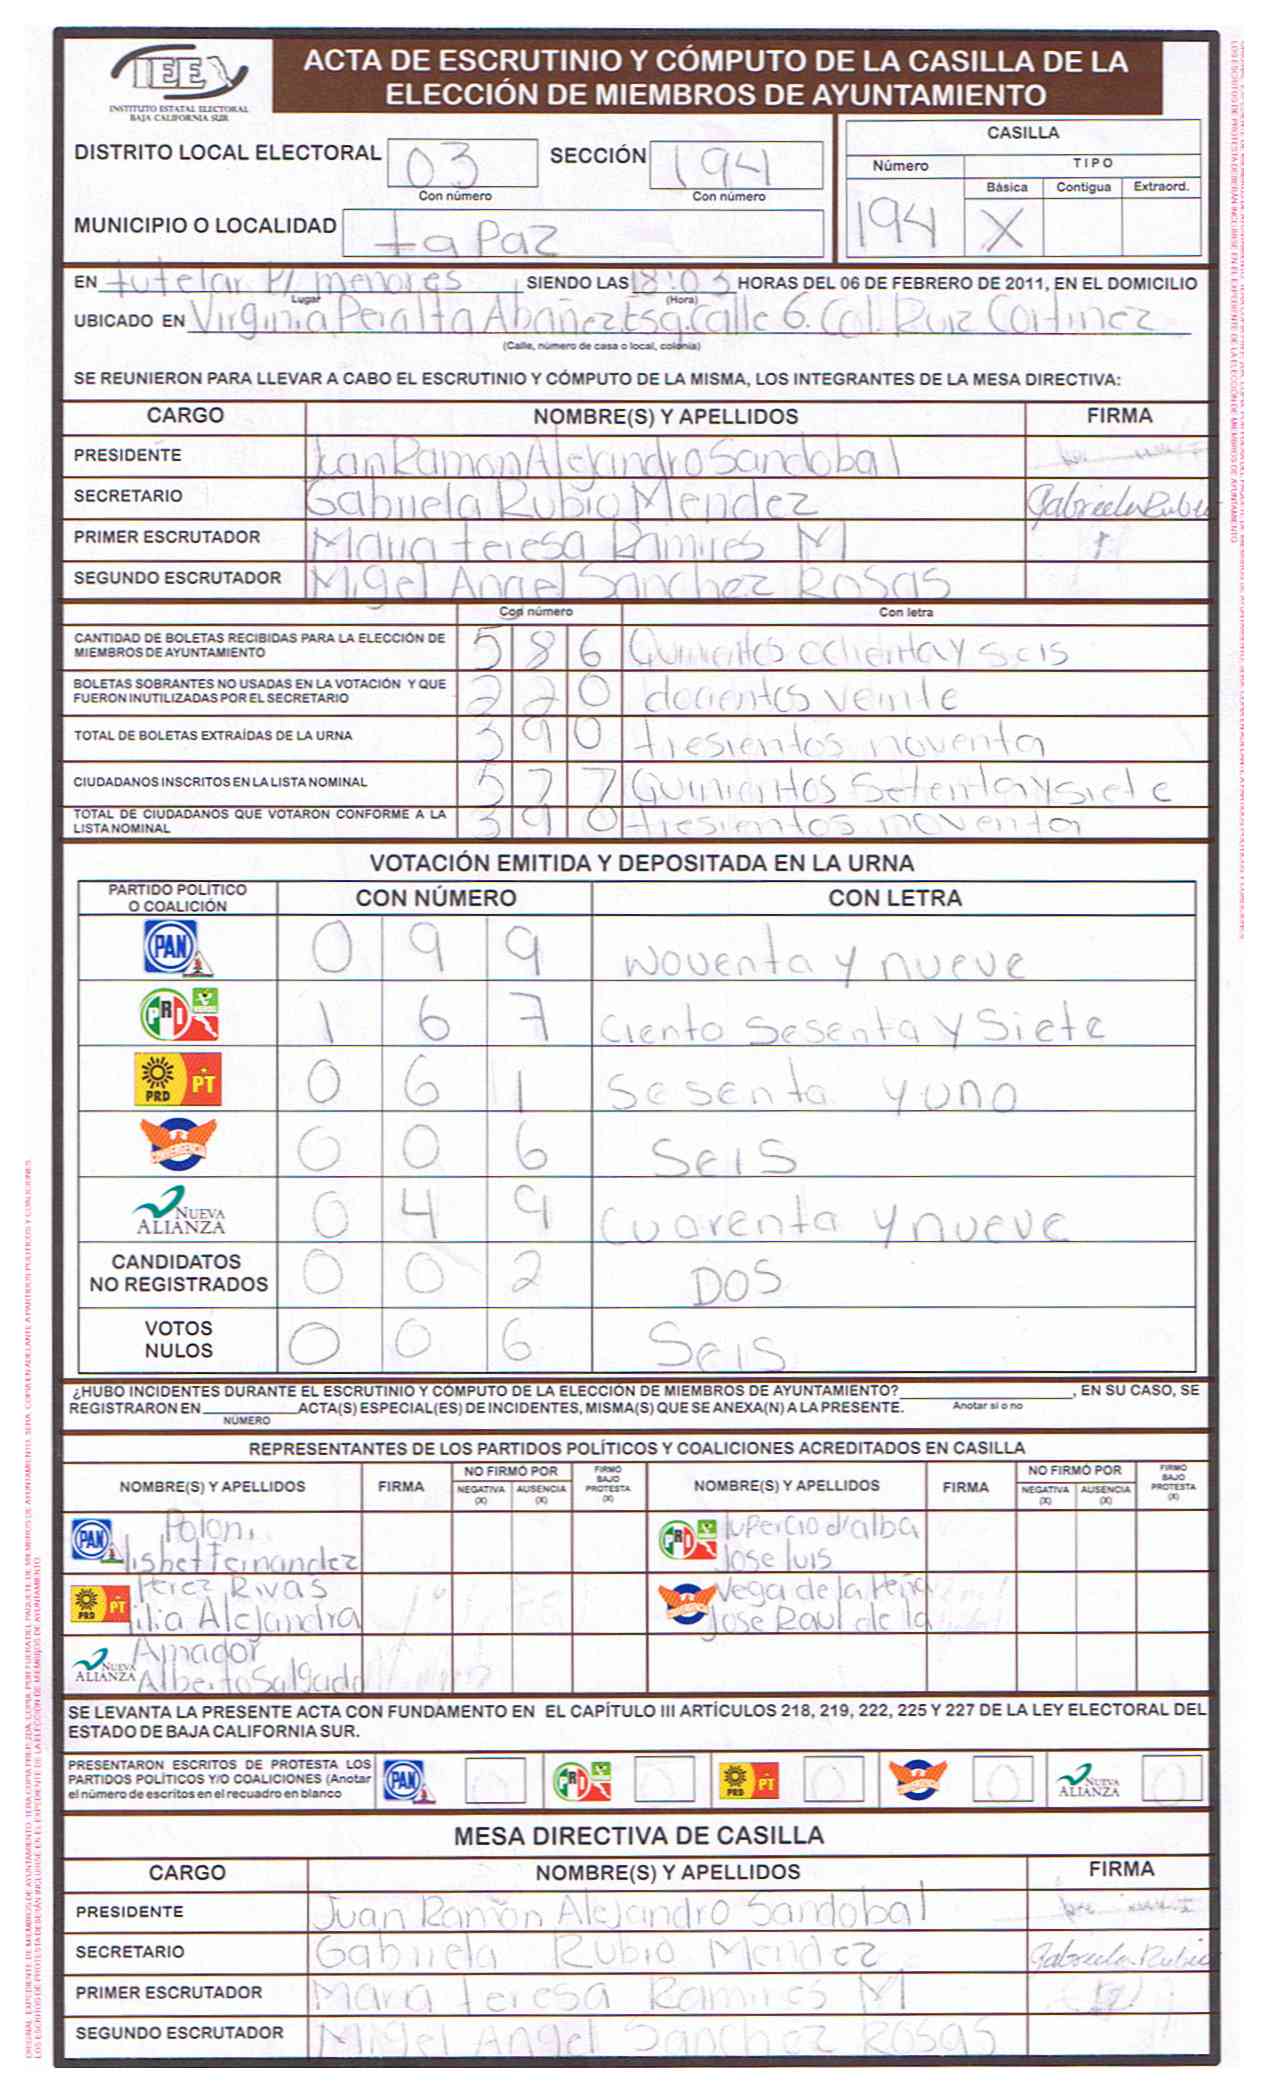 IEE
INSTITUTO ESTATAL ELECTORAL
BAJA CALIFORNIA SUR
ACTA DE ESCRUTINIO Y CÓMPUTO DE LA CASILLA DE LA
ELECCIÓN DE MIEMBROS DE AYUNTAMIENTO
DISTRITO LOCAL ELECTORAL 03 SECCIÓN 194
Con número Con número
MUNICIPIO O LOCALIDAD La Paz
CASILLA
Número TIPO
Básica Contigua Extraord.
194 X
EN tutelar P/ menores SIENDO LAS 18:03 HORAS DEL 06 DE FEBRERO DE 2011, EN EL DOMICILIO
Lugar (Hora)
UBICADO EN Virginia Peralta Abañez Esq. Calle 6. Col. Ruiz Cortinez
(Calle, número de casa o local, colonia)
SE REUNIERON PARA LLEVAR A CABO EL ESCRUTINIO Y CÓMPUTO DE LA MISMA, LOS INTEGRANTES DE LA MESA DIRECTIVA:
CARGO NOMBRE(S) Y APELLIDOS FIRMA
PRESIDENTE Juan Ramon Alejandro Sandobal
SECRETARIO Gabriela Rubio Mendez Gabriela Rubio
PRIMER ESCRUTADOR Maria teresa Ramires M
SEGUNDO ESCRUTADOR Migel Angel Sanchez Rosas
Con número Con letra
CANTIDAD DE BOLETAS RECIBIDAS PARA LA ELECCIÓN DE
MIEMBROS DE AYUNTAMIENTO 5 8 6 Quinientos ochenta y seis
BOLETAS SOBRANTES NO USADAS EN LA VOTACIÓN Y QUE
FUERON INUTILIZADAS POR EL SECRETARIO 2 2 0 docientos veinte
TOTAL DE BOLETAS EXTRAÍDAS DE LA URNA 3 9 0 tresientos noventa
CIUDADANOS INSCRITOS EN LA LISTA NOMINAL 5 7 7 Quinientos setenta y siete
TOTAL DE CIUDADANOS QUE VOTARON CONFORME A LA
LISTA NOMINAL 3 9 0 tresientos noventa
VOTACIÓN EMITIDA Y DEPOSITADA EN LA URNA
PARTIDO POLÍTICO
O COALICIÓN CON NÚMERO CON LETRA
PAN 0 9 9 noventa y nueve
PRI 1 6 7 Ciento Sesenta y Siete
PRD PT 0 6 1 Sesenta y uno
CONVERGENCIA 0 0 6 Seis
NUEVA ALIANZA 0 4 9 Cuarenta y nueve
CANDIDATOS
NO REGISTRADOS 0 0 2 DOS
VOTOS
NULOS 0 0 6 Seis
¿HUBO INCIDENTES DURANTE EL ESCRUTINIO Y CÓMPUTO DE LA ELECCIÓN DE MIEMBROS DE AYUNTAMIENTO? , EN SU CASO, SE
REGISTRARON EN ACTA(S) ESPECIAL(ES) DE INCIDENTES, MISMA(S) QUE SE ANEXA(N) A LA PRESENTE. Anotar si o no
NÚMERO
REPRESENTANTES DE LOS PARTIDOS POLÍTICOS Y COALICIONES ACREDITADOS EN CASILLA
NOMBRE(S) Y APELLIDOS FIRMA NO FIRMÓ POR NEGATIVA (X) AUSENCIA (X) FIRMÓ BAJO PROTESTA (X) NOMBRE(S) Y APELLIDOS FIRMA NO FIRMÓ POR NEGATIVA (X) AUSENCIA (X) FIRMÓ BAJO PROTESTA (X)
PAN lisbet Fernandez
PRI lupercio d'alba
Jose luis
PRD PT Perez Rivas
lilia Alejandra
Vega de la Peña
Jose Raul de la
NUEVA ALIANZA Amador
Alberto Salgado
SE LEVANTA LA PRESENTE ACTA CON FUNDAMENTO EN EL CAPÍTULO III ARTÍCULOS 218, 219, 222, 225 Y 227 DE LA LEY ELECTORAL DEL
ESTADO DE BAJA CALIFORNIA SUR.
PRESENTARON ESCRITOS DE PROTESTA LOS
PARTIDOS POLÍTICOS Y/O COALICIONES (Anotar
el número de escritos en el recuadro en blanco
PAN 0 PRI 0 PRD PT 0 0 NUEVA ALIANZA 0
MESA DIRECTIVA DE CASILLA
CARGO NOMBRE(S) Y APELLIDOS FIRMA
PRESIDENTE Juan Ramón Alejandro Sandobal
SECRETARIO Gabriela Rubio Mendez Gabriela Rubio
PRIMER ESCRUTADOR Maria teresa Ramires M
SEGUNDO ESCRUTADOR Migel Angel Sanchez Rosas